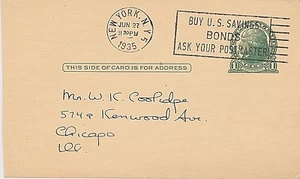 NEW YORK, N.Y. 5
JUN 27
1935
BUY U.S. SAVINGS
BONDS
ASK YOUR POSTMASTER
THIS SIDE OF CARD IS FOR ADDRESS
Mr. W. K. Coolidge
Kenwood Ave.
Chicago
Ill.